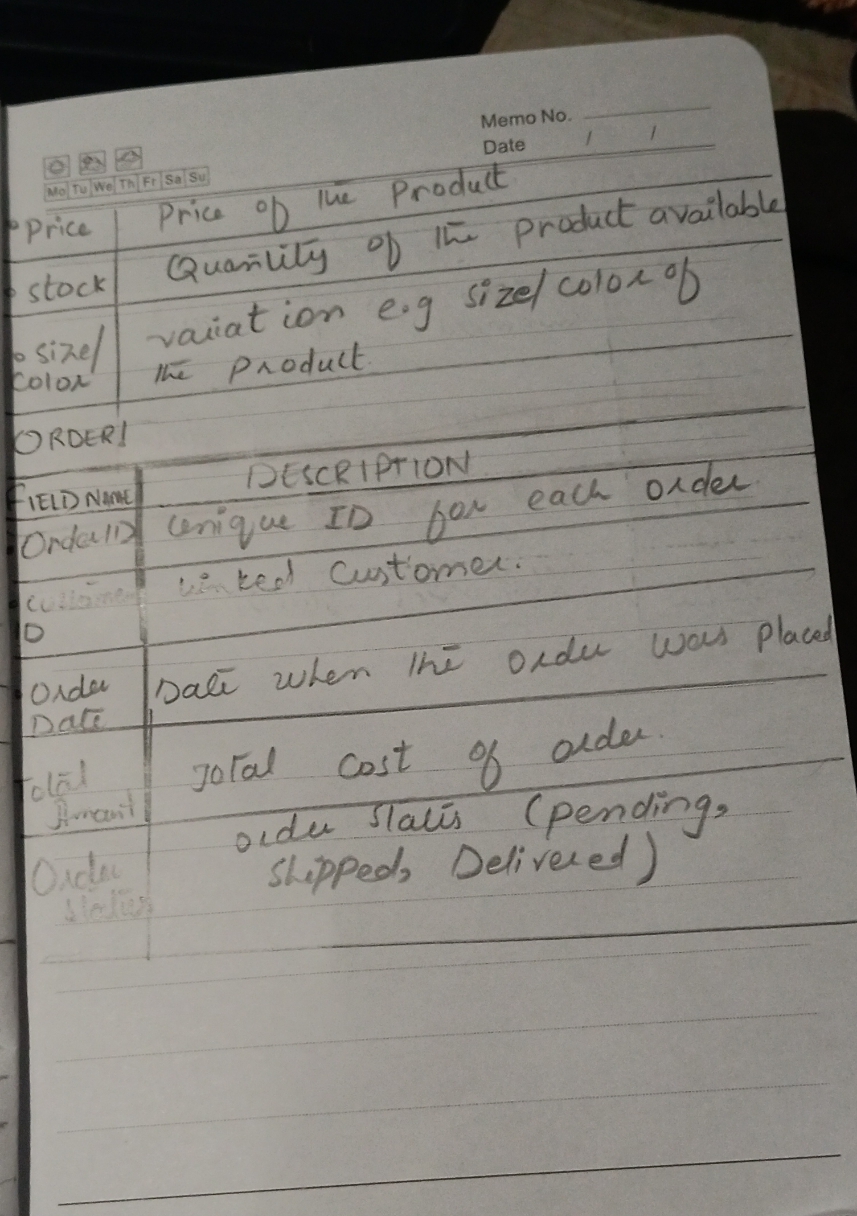 Memo No.
Date / /
Mo Tu We Th Fr Sa Su
Price Price of the Product
stock Quantity of the product available
size/ variation e.g size/color of
color the product.
ORDER!
FIELD NAME DESCRIPTION
Order ID Unique ID for each order
Customer Linked Customer.
ID
Order Date when the order was placed
Date
Total Total cost of order.
Amount
Order order status (pending,
status shipped, Delivered)